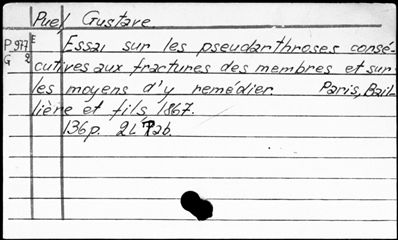 Puel, Gustave.
P 977 E Essai sur les pseudarthroses consé-
G 2 cutives aux fractures des membres et sur
les moyens d'y remédier Paris, Bail-
lière et fils 1867.
136 p. 2 L Tab.